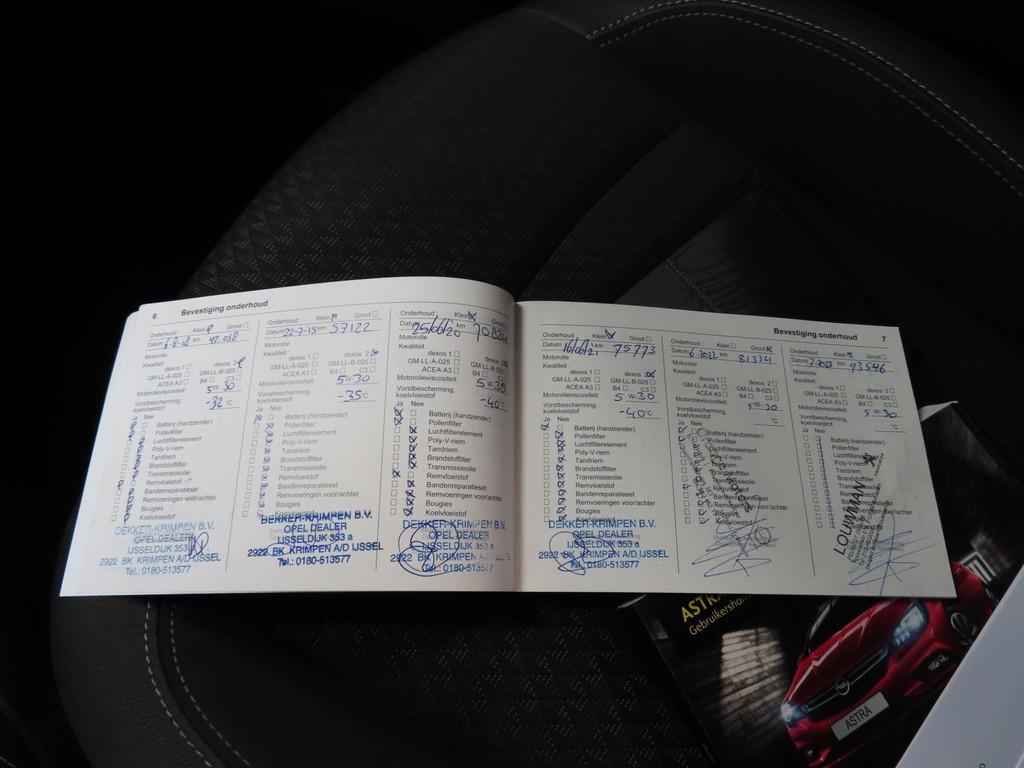 6 Bevestiging onderhoud
Onderhoud: Klein Groot
Datum 6-8-18 km 42.038
Motorolie
Kwaliteit:
dexos 1 dexos 2
GM-LL-A-025 GM-LL-B-025
ACEA A3 B4 C3
Motorolieviscositeit:
5 W 30
Vorstbescherming,
koelvloeistof
-32 °C
Ja Nee
Batterij (handzender)
Pollenfilter
Luchtfilterelement
Poly-V-riem
Tandriem
Brandstoffilter
Transmissieolie
Remvloeistof
Bandenreparatieset
Remvoeringen voor/achter
Bougies
Koelvloeistof
DEKKER-KRIMPEN B.V.
OPEL DEALER
IJSSELDIJK 353 a
2922 BK KRIMPEN A/D IJSSEL
Tel.: 0180-513577
Onderhoud: Klein Groot
Datum 22-7-19 km 57122
Motorolie
Kwaliteit:
dexos 1 dexos 2
GM-LL-A-025 GM-LL-B-025
ACEA A3 B4 C3
Motorolieviscositeit:
5 W 30
Vorstbescherming,
koelvloeistof
-35 °C
Ja Nee
Batterij (handzender)
Pollenfilter
Luchtfilterelement
Poly-V-riem
Tandriem
Brandstoffilter
Transmissieolie
Remvloeistof
Bandenreparatieset
Remvoeringen voor/achter
Bougies
DEKKER-KRIMPEN B.V.
OPEL DEALER
IJSSELDIJK 353 a
2922 BK KRIMPEN A/D IJSSEL
Tel.: 0180-513577
Onderhoud: Klein Groot
Datum 25/06/20 km
Motorolie
Kwaliteit:
dexos 1 dexos 2
GM-LL-A-025 GM-LL-B-025
ACEA A3 B4 C3
Motorolieviscositeit:
5 W 30
Vorstbescherming,
koelvloeistof
-40 °C
Ja Nee
Batterij (handzender)
Pollenfilter
Luchtfilterelement
Poly-V-riem
Tandriem
Brandstoffilter
Transmissieolie
Remvloeistof
Bandenreparatieset
Remvoeringen voor/achter
Bougies
Koelvloeistof
DEKKER-KRIMPEN B.V.
OPEL DEALER
IJSSELDIJK 353 a
2922 BK KRIMPEN A/D
Tel.: 0180-513577
Bevestiging onderhoud 7
Onderhoud: Klein Groot
Datum km 75773
Motorolie
Kwaliteit:
dexos 1
GM-LL-A-025 GM-LL-B-025
ACEA A3 B4 C3
Motorolieviscositeit:
5 W 30
Vorstbescherming,
koelvloeistof
-40 °C
Ja Nee
Batterij (handzender)
Pollenfilter
Luchtfilterelement
Poly-V-riem
Tandriem
Brandstoffilter
Transmissieolie
Remvloeistof
Bandenreparatieset
Remvoeringen voor/achter
Bougies
Koelvloeistof
DEKKER-KRIMPEN B.V.
OPEL DEALER
IJSSELDIJK 353 a
2922 BK KRIMPEN A/D IJSSEL
Tel.: 0180-513577
Onderhoud: Klein Groot
Datum km 81334
Motorolie
Kwaliteit:
dexos 1 dexos 2
GM-LL-A-025 GM-LL-B-025
ACEA A3 B4 C3
Motorolieviscositeit:
5 W 30
Vorstbescherming,
koelvloeistof
°C
Ja Nee
Batterij (handzender)
Pollenfilter
Luchtfilterelement
Poly-V-riem
Tandriem
Brandstoffilter
Transmissieolie
Remvloeistof
Bandenreparatieset
Remvoeringen voor/achter
Bougies
Koelvloeistof
Onderhoud: Klein Groot
Datum km 93546
Motorolie
Kwaliteit:
dexos 1 dexos 2
GM-LL-A-025 GM-LL-B-025
ACEA A3 B4 C3
Motorolieviscositeit:
5 W 30
Vorstbescherming,
koelvloeistof
°C
Ja Nee
Batterij (handzender)
Pollenfilter
Luchtfilterelement
Poly-V-riem
Tandriem
Brandstoffilter
Transmissieolie
Koelvloeistof
LOUWMAN
ASTRA
ASTRA